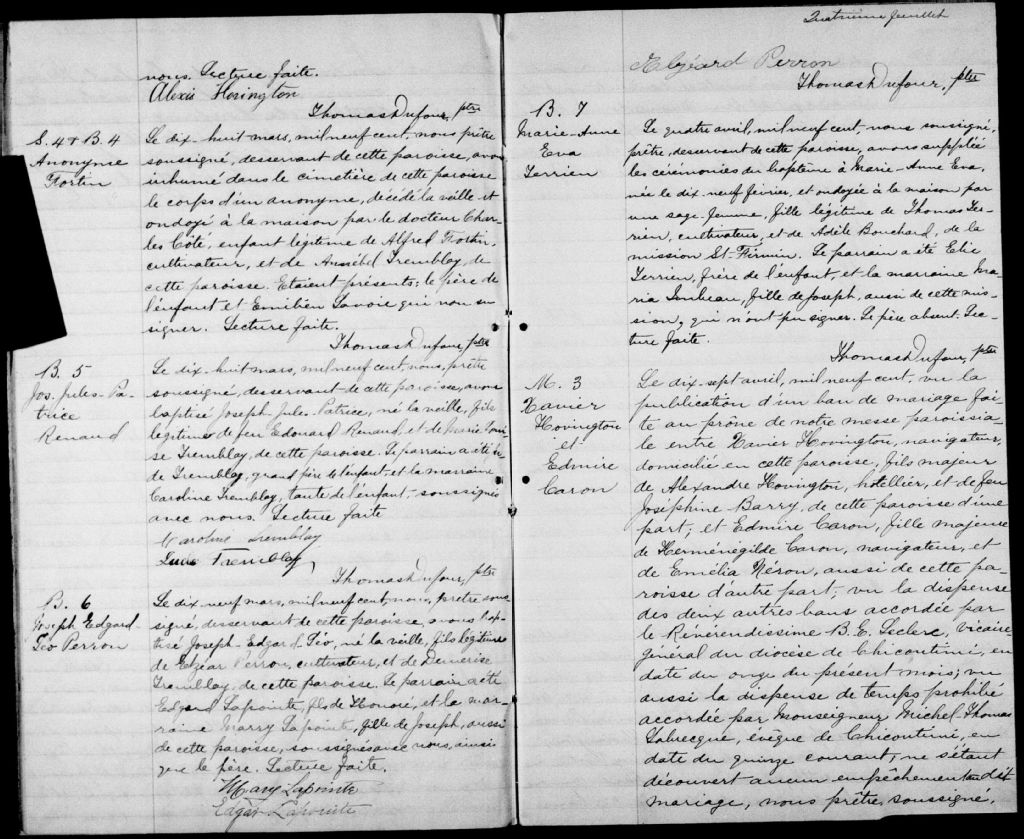 nous. Lecture faite.
Alexis Hovington
Thomas Dufour, ptre
S. 4 & B. 4
Anonyme
Fortin
Le dix-huit mars, mil neuf cent, nous prêtre
soussigné, desservant de cette paroisse, avons
inhumé dans le cimetière de cette paroisse
le corps d'un anonyme, décédé la veille et
ondoyé à la maison par le docteur Char-
les Côté, enfant légitime de Alfred Fortin,
cultivateur, et de Tremblay, de
cette paroisse. Etaient présents: le père de
l'enfant et Emilien Savoie qui n'ont su
signer. Lecture faite.
Thomas Dufour, ptre
B. 5
Jos. Jules-Pa-
trice
Renaud
Le dix-huit mars, mil neuf cent, nous, prêtre
soussigné, desservant de cette paroisse, avons
baptisé Joseph-Jules-Patrice, né la veille, fils
légitime de feu Edouard Renaud, et de Marie Loui-
se Tremblay, de cette paroisse. Le parrain a été
de Tremblay, grand père de l'enfant et la marraine
Caroline Tremblay, tante de l'enfant, soussignés
avec nous. Lecture faite
Caroline Tremblay
Tremblay
Thomas Dufour, ptre
B. 6
Joseph Edgard
Léo Perron
Le dix-neuf mars, mil neuf cent, nous, prêtre sous-
signé, desservant de cette paroisse, avons bap-
tisé Joseph-Edgard-Léo, né la veille, fils légitime
de Elzéar Perron, cultivateur, et de Démerise
Tremblay, de cette paroisse. Le parrain a été
Edgard Lapointe, fils de Honoré, et la mar-
raine Marry Lapointe, fille de Joseph, aussi
de cette paroisse, soussignés avec nous, ainsi
que le père. Lecture faite.
Mary Lapointe
Edgar Lapointe
Quatrième feuillet
Elzéard Perron
Thomas Dufour, ptre
B. 7
Marie-Anne
Eva
Terrien
Le quatre avril, mil neuf cent, nous soussigné,
prêtre, desservant de cette paroisse, avons suppléé
les cérémonies du baptême à Marie-Anne Eva,
née le dix-neuf février, et ondoyée à la maison par
une sage-femme, fille légitime de Thomas Ter-
rien, cultivateur, et de Adèle Bouchard, de la
mission St-Firmin. Le parrain a été Elie
Terrien, frère de l'enfant, et la marraine Ma-
ria Imbeau, fille de Joseph, aussi de cette mis-
sion, qui n'ont pu signer. Le père absent. Lec-
ture faite.
Thomas Dufour, ptre
M. 3
Xavier
Hovington
et
Edmire
Caron
Le dix-sept avril, mil neuf cent, vu la
publication d'un ban de mariage fai-
te au prône de notre messe paroissia-
le entre Xavier Hovington, navigateur,
domicilié en cette paroisse, fils majeur
de Alexandre Hovington, hôtellier, et de feu
Joséphine Barry, de cette paroisse d'une
part; et Edmire Caron, fille majeure
de Herménégilde Caron, navigateur, et
de Emélia Néron, aussi de cette pa-
roisse d'autre part; vu la dispense
des deux autres bans accordée par
le Révérendissime B. E. Leclerc, vicaire-
général du diocèse de Chicoutimi, en
date du onze du présent mois; vu
aussi la dispense de temps prohibé
accordée par Monseigneur Michel-Thomas
Labrecque, évêque de Chicoutimi, en
date du quinze courant; ne s'étant
découvert aucun empêchement au dit
mariage, nous prêtre, soussigné,